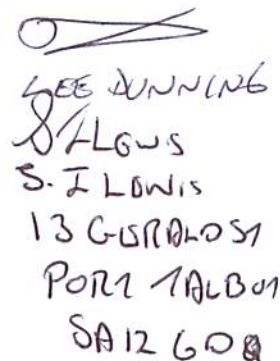 LEE DUNNING
S I LEWIS
S. I LEWIS
13 GERALD ST
PORT TALBOT
SA12 6DQ